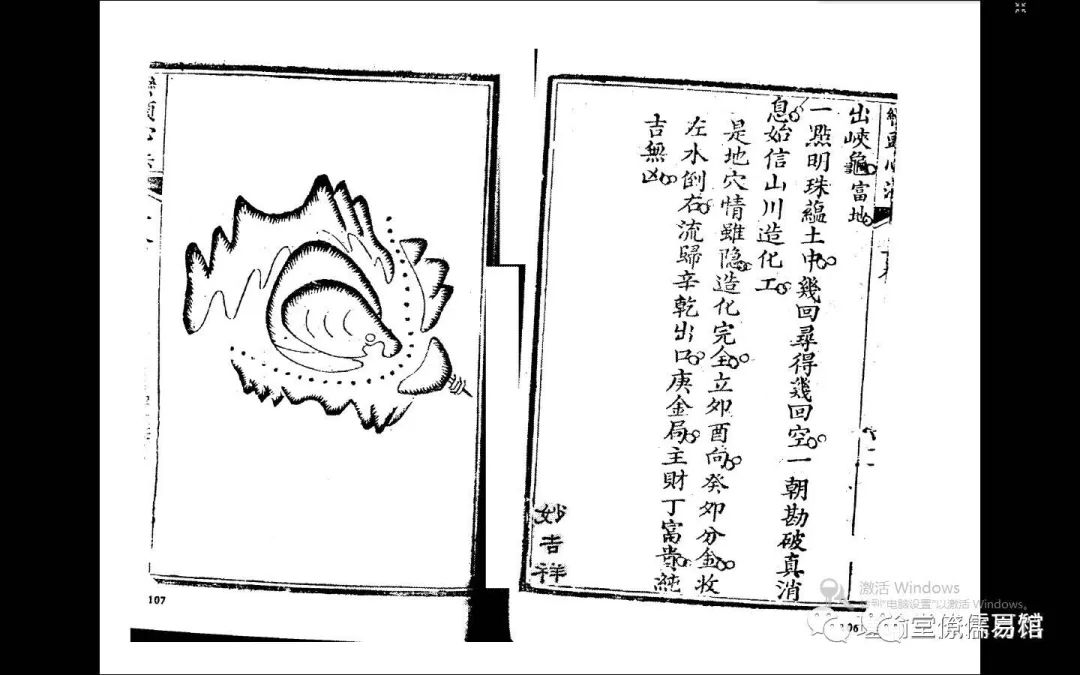 出峽龜富地
一點明珠蘊土中幾回尋得幾回空一朝勘破真消
息始信山川造化工
是地穴情雖隐造化完全立卯酉向癸卯分金收
左水倒右流歸辛乾出口庚金局主財丁富貴純
吉無凶
妙吉祥
107
激活 Windows
转到"电脑设置"以激活 Windows。
堂僚儒易馆